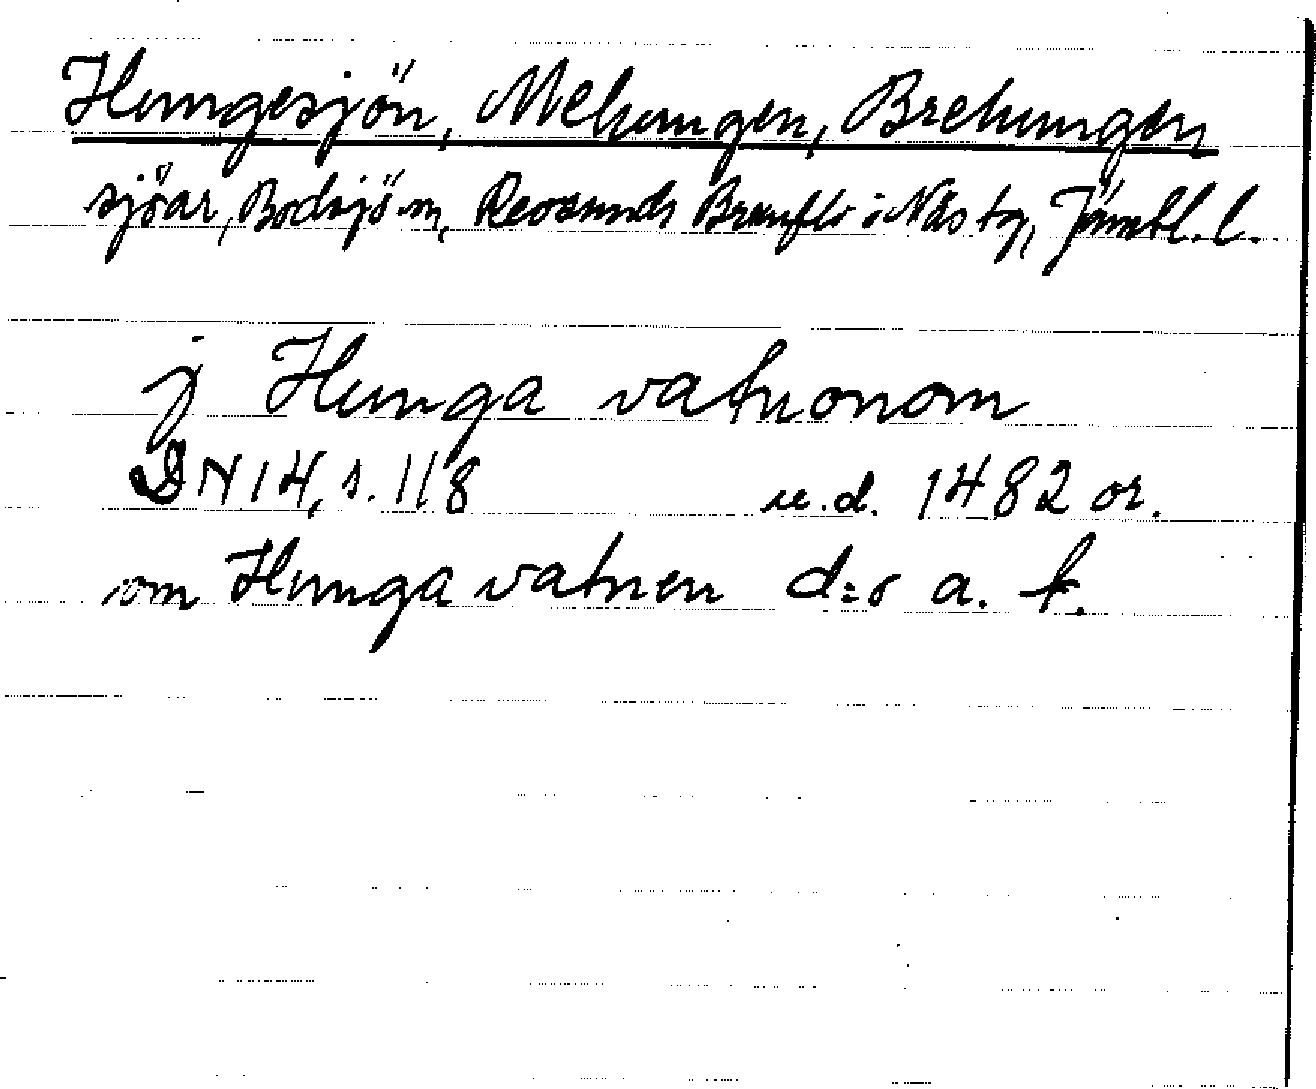 Hungesjön, Mehungen, Brehungen
sjöar, Bodsjö sn, Revsunds Brunflo i Näs tg, Jämtl. l.
j Hunga vatnonom
DN 14, s. 118 u.d. 1482 or.
om Hunga vatnen d:o a. t.